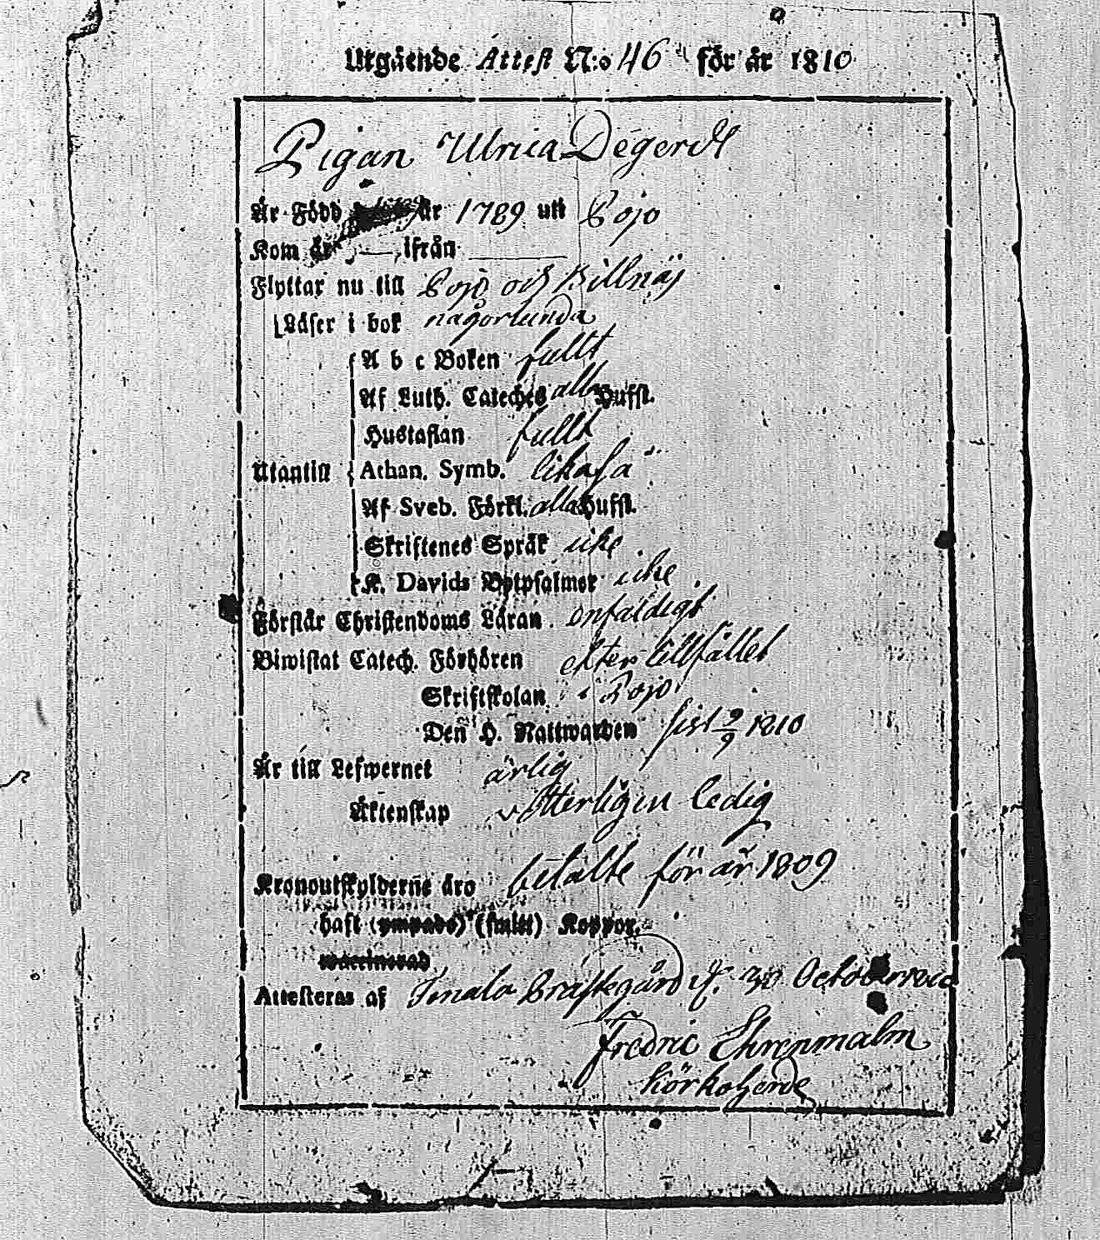 Utgående Attest N:o 46 för år 1810
Pigan Ulrica Degerdt
Är Född år 1789 uti Pojo
Kom år — ifrån —
Flyttar nu till Pojo och Billnäs
Läser i bok någorlunda
A b c Boken fullt
Af Luth. Cateches alla Hufst.
Hustaflan fullt
Utantill Athan. Symb. likaså
Af Sveb. Förkl. alla Hufst.
Skriftenes Språk icke
K. Davids Botpsalmer icke
Förstår Christendoms Läran enfaldigt
Biwistat Catech. Förhören efter tillfället
Skriftskolan i Pojo
Den H. Nattwarden sist 9/9 1810
Är till Lefwernet ärlig
Äktenskap vetterligen ledig
Kronoutskylderne äro betalte för år 1809
haft (ympade) (smitt) Koppor.
waccinerad
Attesteras af Tenala Prästegård d. 30 October 1810
Fredric Ehrenmalm
Körkoherde